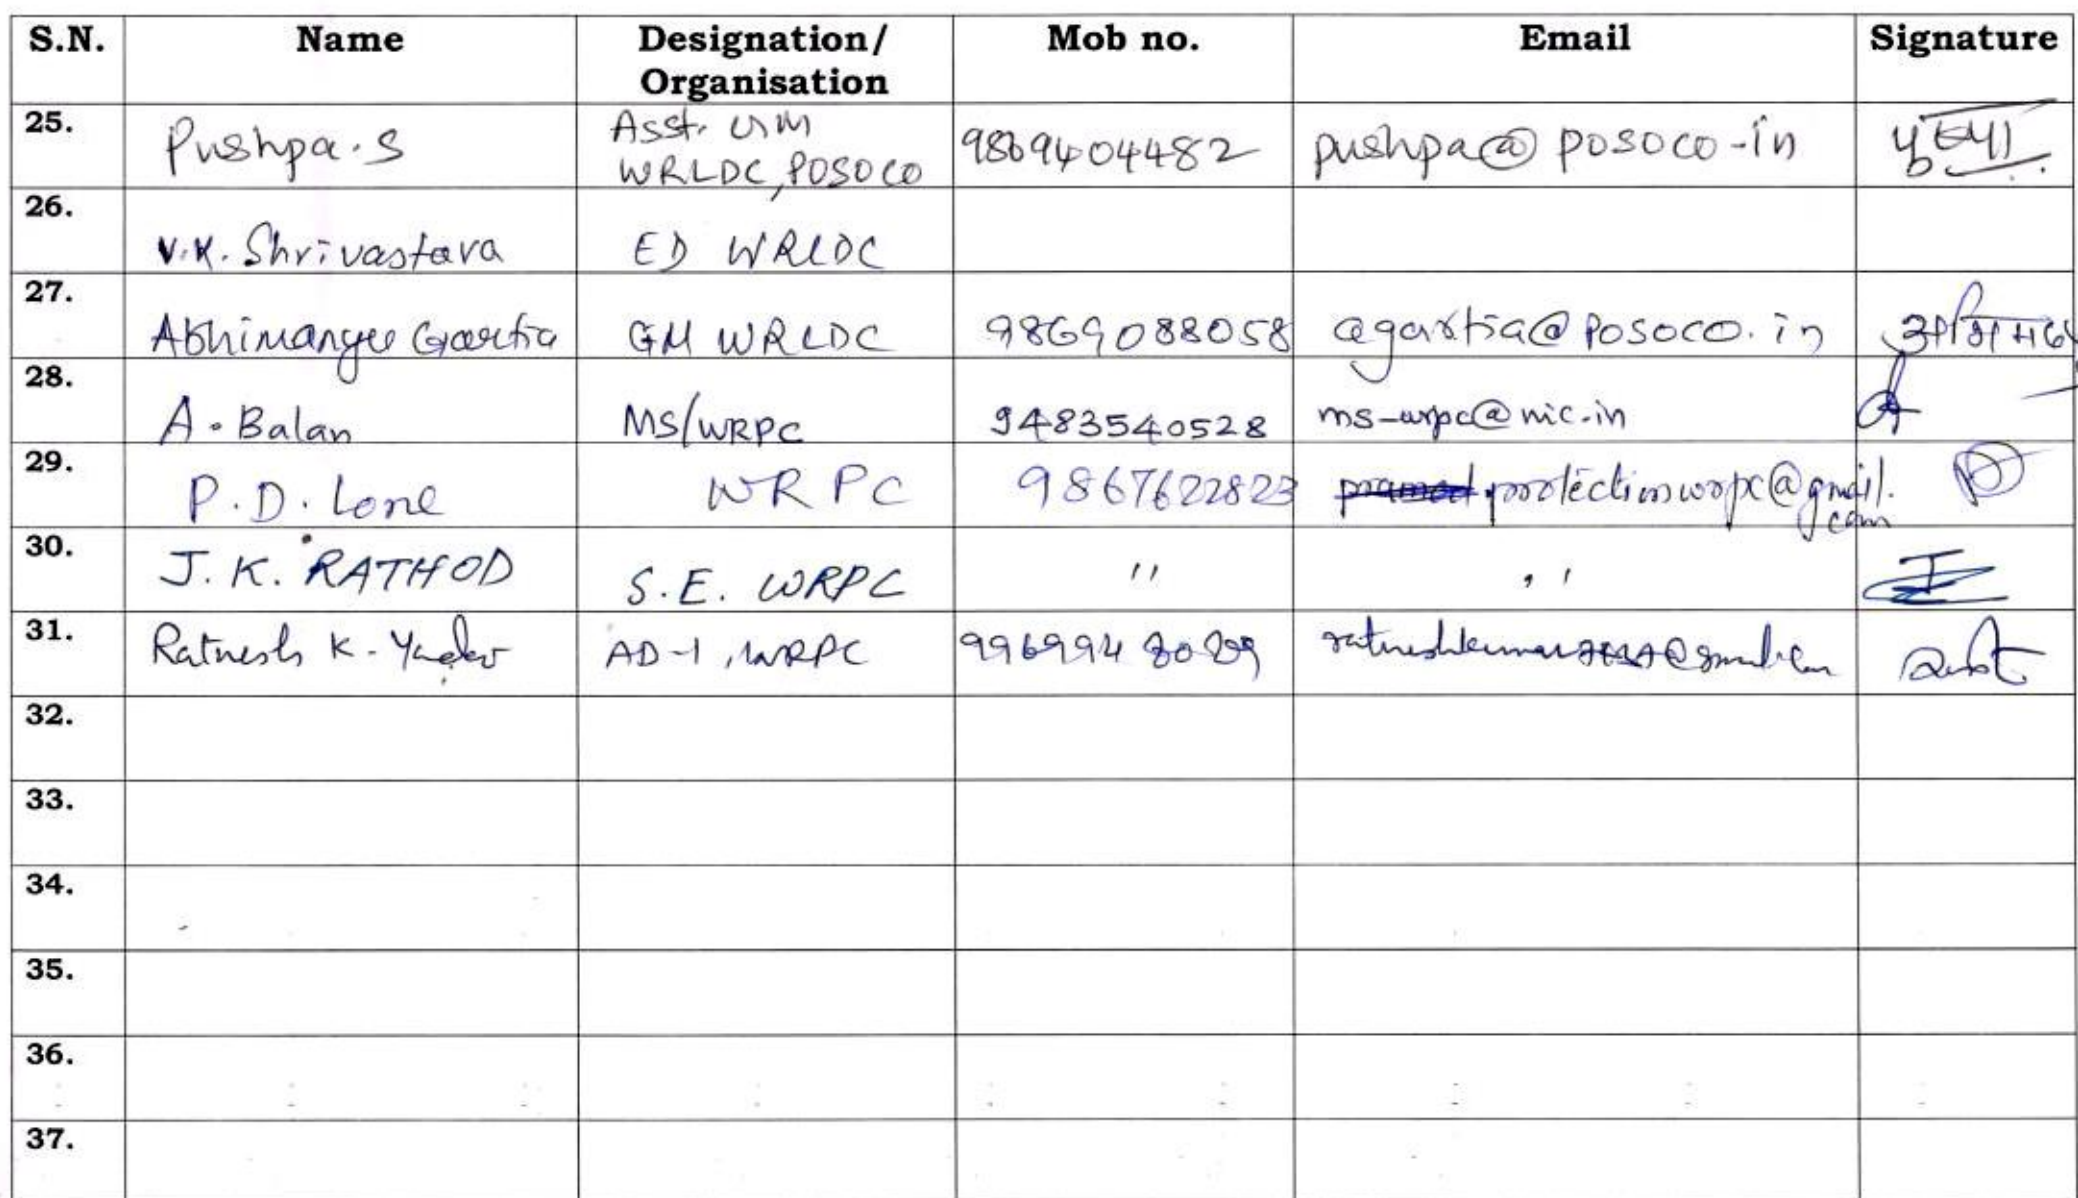 S.N. Name Designation/ Organisation Mob no. Email Signature
25. Pushpa.S Asst. GM WRLDC, POSOCO 9869404482 pushpa@posoco.in पुष्पा
26. V.K. Shrivastava ED WRLDC
27. Abhimanyu Gartia GM WRLDC 9869088058 agartia@posoco.in
28. A. Balan MS/WRPC 9483540528 ms-wrpc@nic.in
29. P.D. Lone WRPC 9867622823 protectionwrpc@gmail.com
30. J.K. RATHOD S.E. WRPC " "
31. Ratnesh K. Yadav AD-1, WRPC
32.
33.
34.
35.
36.
37.